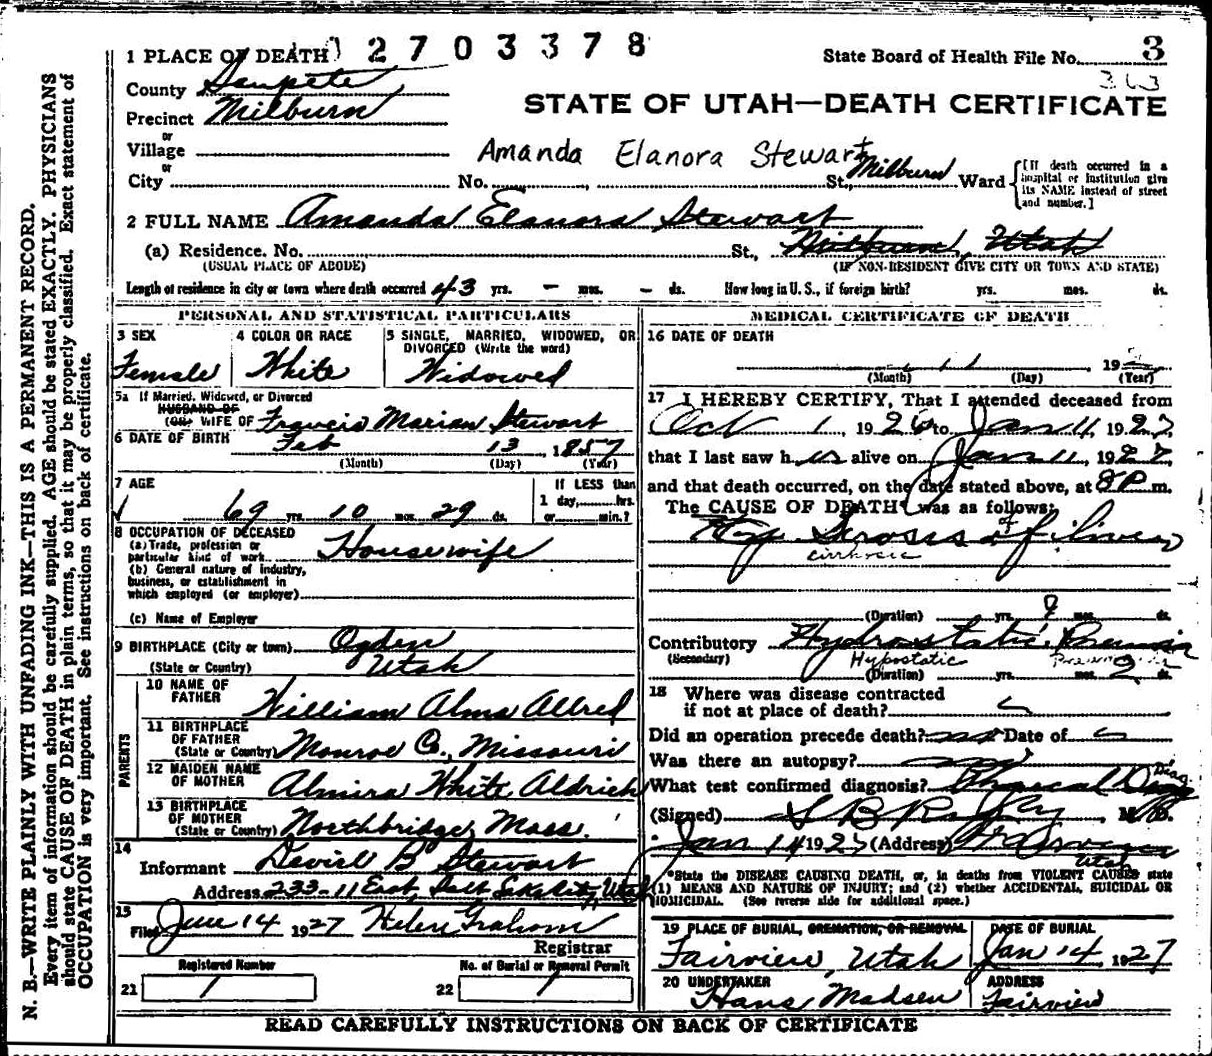 1 PLACE OF DEATH 2703378 State Board of Health File No. 3
363
County Sanpete
STATE OF UTAH—DEATH CERTIFICATE
Precinct Milburn
or
Village
Amanda Elanora Stewart
or
City No. St., Milburn Ward {[If death occurred in a hospital or institution give its NAME instead of street and number.]
2 FULL NAME Amanda Elanora Stewart
(a) Residence. No. St., Milburn, Utah
(USUAL PLACE OF ABODE) (IF NON-RESIDENT GIVE CITY OR TOWN AND STATE)
Length of residence in city or town where death occurred 43 yrs. — mos. — ds. How long in U. S., if foreign birth? yrs. mos. ds.
PERSONAL AND STATISTICAL PARTICULARS
3 SEX 4 COLOR OR RACE 5 SINGLE, MARRIED, WIDOWED, OR
DIVORCED (Write the word)
Female White Widowed
5a If Married, Widowed, or Divorced
HUSBAND OF
(OR) WIFE OF Francis Marian Stewart
6 DATE OF BIRTH Feb 13, 1857
(Month) (Day) (Year)
7 AGE If LESS than
1 day, hrs.
69 yrs. 10 mos. 29 ds. or min.?
8 OCCUPATION OF DECEASED
(a) Trade, profession or
particular kind of work Housewife
(b) General nature of industry,
business, or establishment in
which employed (or employer)
(c) Name of Employer
9 BIRTHPLACE (City or town) Ogden
(State or Country) Utah
PARENTS
10 NAME OF
FATHER William Alma Allred
11 BIRTHPLACE
OF FATHER
(State or Country) Monroe Co., Missouri
12 MAIDEN NAME
OF MOTHER Almira White Aldrich
13 BIRTHPLACE
OF MOTHER
(State or Country) Northbridge, Mass.
14
Informant B Stewart
Address 233-11 East, Salt Lake City, Utah
15
Filed June 14 1927 Helen Graham
Registrar
Registered Number No. of Burial or Removal Permit
21 1 22 1
MEDICAL CERTIFICATE OF DEATH
16 DATE OF DEATH
11 192
(Month) (Day) (Year)
17 I HEREBY CERTIFY, That I attended deceased from
Oct 1, 1926 to Jan 11, 1927,
that I last saw h er alive on Jan 11, 1927,
and that death occurred, on the date stated above, at 8 P m.
The CAUSE OF DEATH was as follows:
of liver
cirrhosis
(Duration) yrs. 8 mos. ds.
Contributory Hydrostatic
(Secondary) Hypostatic
(Duration) yrs. mos. 2 ds.
18 Where was disease contracted
if not at place of death?
Did an operation precede death? no Date of
Was there an autopsy? no
What test confirmed diagnosis? Physical Diag
(Signed) M. D.
Jan 14 1927 (Address)
Utah
*State the DISEASE CAUSING DEATH, or, in deaths from VIOLENT CAUSES state
(1) MEANS AND NATURE OF INJURY; and (2) whether ACCIDENTAL, SUICIDAL OR
HOMICIDAL. (See reverse side for additional space.)
19 PLACE OF BURIAL, CREMATION, OR REMOVAL DATE OF BURIAL
Fairview, Utah Jan 14, 1927
20 UNDERTAKER ADDRESS
Hans Madsen Fairview
READ CAREFULLY INSTRUCTIONS ON BACK OF CERTIFICATE
N. B.—WRITE PLAINLY WITH UNFADING INK—THIS IS A PERMANENT RECORD.
Every item of information should be carefully supplied. AGE should be stated EXACTLY. PHYSICIANS
should state CAUSE OF DEATH in plain terms, so that it may be properly classified. Exact statement of
OCCUPATION is very important. See instructions on back of certificate.